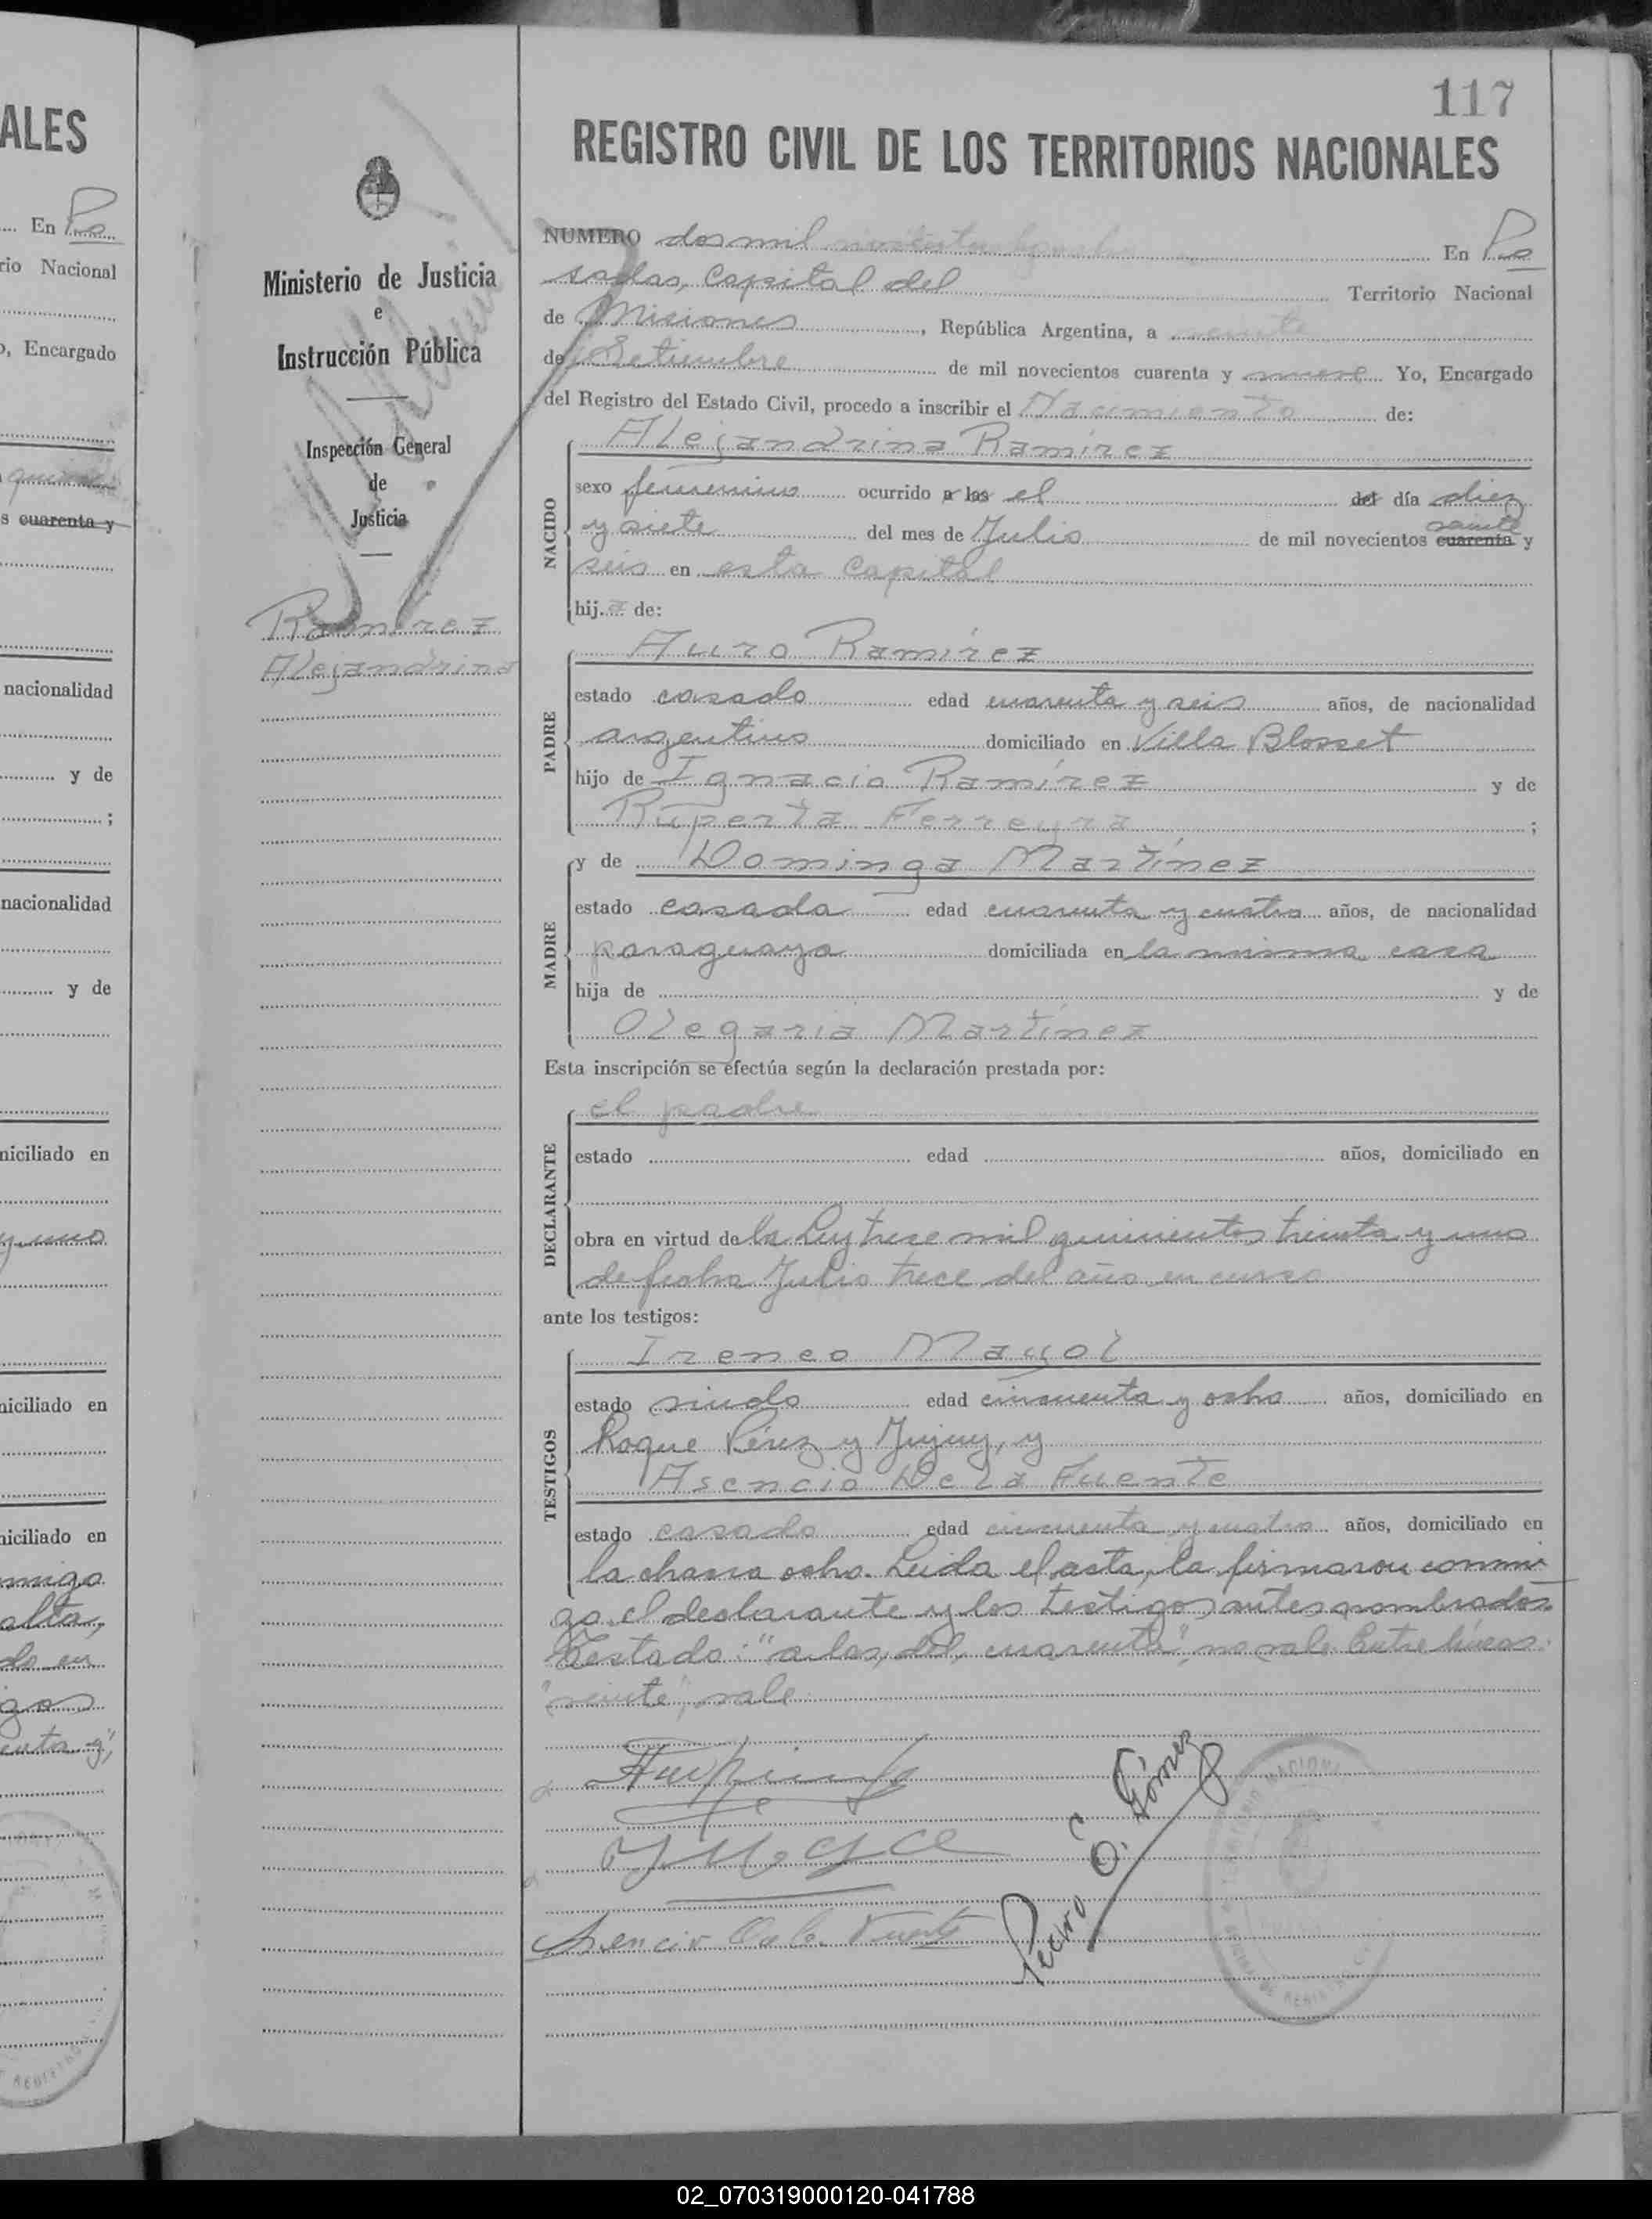 ALES
En Po
rio Nacional
o, Encargado
s cuarenta y
nacionalidad
y de
;
nacionalidad
y de
niciliado en
y uno
niciliado en
niciliado en
migo
alta,
do en
gos
enta y",
Ministerio de Justicia
e
Instrucción Pública
Inspección General
de
Justicia
Ramírez
Alejandrina
117
REGISTRO CIVIL DE LOS TERRITORIOS NACIONALES
NUMERO dos mil En Po
sadas, Capital del Territorio Nacional
de Misiones, República Argentina, a veinte
de Setiembre de mil novecientos cuarenta y nueve Yo, Encargado
del Registro del Estado Civil, procedo a inscribir el Nacimiento de:
Alejandrina Ramírez
NACIDO
sexo femenino ocurrido a las el del día diez
y siete del mes de Julio de mil novecientos cuarenta veinte y
seis en esta Capital
hija de:
Auro Ramírez
PADRE
estado casado edad cuarenta y seis años, de nacionalidad
argentino domiciliado en Villa Blosset
hijo de Ignacio Ramírez y de
Ruperta Ferreyra ;
y de Dominga Martínez
MADRE
estado casada edad cuarenta y cuatro años, de nacionalidad
paraguaya domiciliada en la misma casa
hija de y de
Olegaria Martínez
Esta inscripción se efectúa según la declaración prestada por:
el padre
DECLARANTE
estado edad años, domiciliado en
obra en virtud de la Ley trece mil quinientos treinta y uno
de fecha Julio trece del año en curso
ante los testigos:
Ireneo Mayol
TESTIGOS
estado viudo edad cincuenta y ocho años, domiciliado en
Roque Pérez y Jujuy, y
Asencio De la Fuente
estado casado edad cincuenta y cuatro años, domiciliado en
la chacra ocho. Leída el acta, la firmaron conmi
go el declarante y los testigos antes nombrados.
Testado: "a las, del, cuarenta", no vale. Entre líneas:
"veinte", vale.
Asencio De la Fuente
Pedro C. Gómez
02_070319000120-041788